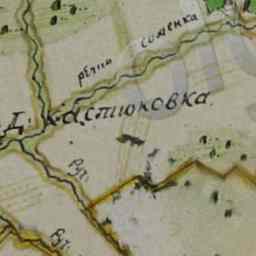 рѣчка Соменка
Д: Кастюковка
Вр.
Вр.